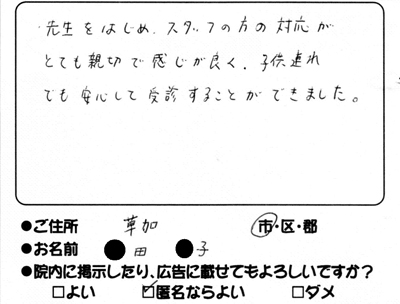 先生をはじめ、スタッフの方の対応が
とても親切で感じが良く、子供連れ
でも安心して受診することができました。
●ご住所 草加 市・区・郡
●お名前 ●田 ●子
●院内に掲示したり、広告に載せてもよろしいですか？
□よい ☑匿名ならよい □ダメ